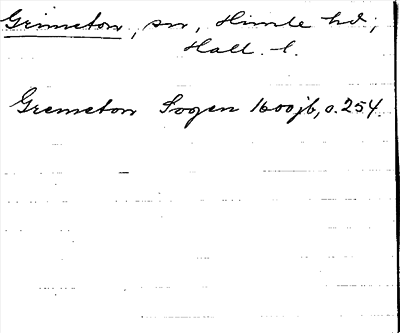 Grimeton, sn, Himle hd;
Hall. l.
Gremeton Sogen 1600 jb, o. 254.